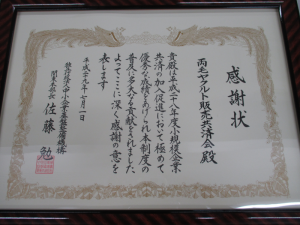 感謝状
両毛ヤクルト販売共済会殿
貴殿は平成二十八年度小規模企業
共済の加入促進において極めて
優秀な成績をあげられ本制度の
普及に多大なる貢献をされました
よってここに深く感謝の意を
表します
平成二十九年十一月一日
独立行政法人中小企業基盤整備機構
関東本部長 佐藤 勉